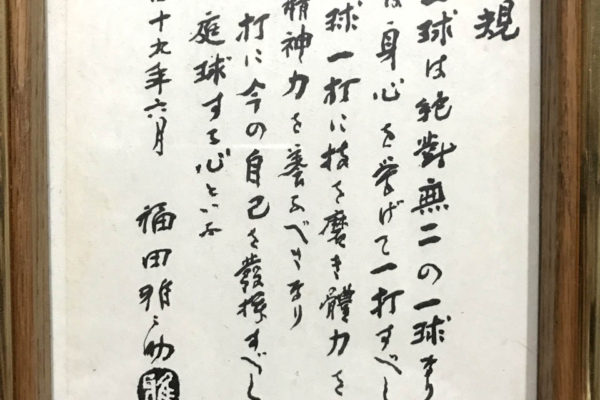 規
一球は絶對無二の一球なり
は身心を挙げて一打すべし
球一打に技を磨き體力を
精神力を養ふべきなり
打に今の自己を發揮すべし
庭球する心といふ
十九年六月
福田雅之助
雅